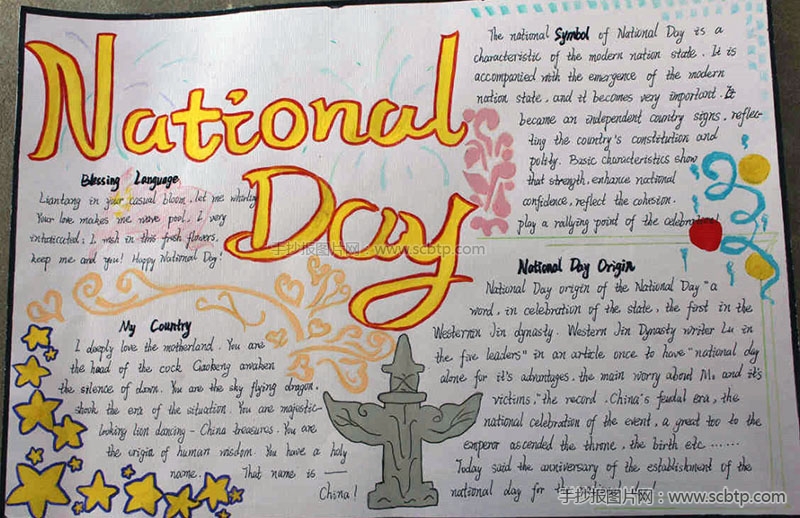 National
Day
The national Symbol of National Day is a
characteristic of the modern nation state. It is
accompanied with the emergence of the modern
nation state, and it becomes very important. It
became an independent country signs, reflec-
ting the country's constitution and
polity. Basic characteristics show
that strength, enhance national
confidence, reflect the cohesion.
play a rallying point of the celebrational
Blessing Language
Liantang in your casual bloom, let me whirling
Your love makes me wave pool, I very
intoxicated; I wish in this fresh flowers,
keep me and you! Happy National Day!
手抄报图片网：www.scbtp.com
National Day Origin
National Day origin of the National Day "a
word, in celebration of the state, the first in the
Westernin Jin dynasty. Western Jin Dynasty writer Lu in
the five leaders" in an article once to have "national day
alone for it's advantages, the main worry about M. and it's
victims," the record. China's feudal era, the
national celebration of the event, a great too to the
emperor ascended the throne, the birth etc ......
Today said the anniversary of the establishment of the
national day for the
手抄报图片网：www.scbtp.com
My Country
I deeply love the motherland. You are
the head of the cock Gaokeng awaken
the silence of dawn. You are the sky flying dragon,
shook the era of the situation. You are majestic-
looking lion dancing - China treasures. You are
the origin of human wisdom. You have a holy
name. That name is ——
China!